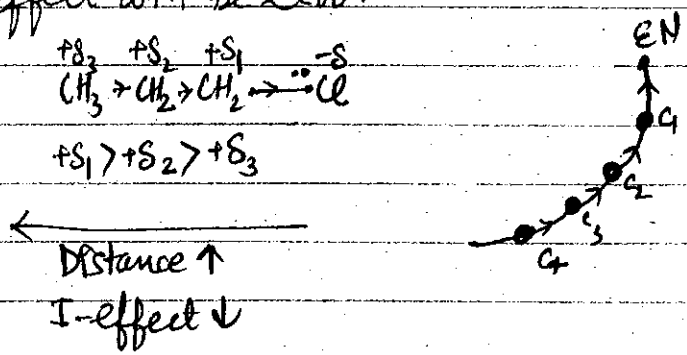 effect will be zero.
+δ3 +δ2 +δ1 -δ
CH3 → CH2 → CH2 →→ Cl
+δ1 > +δ2 > +δ3
Distance ↑
I-effect ↓
EN
C1
C2
C3
C4